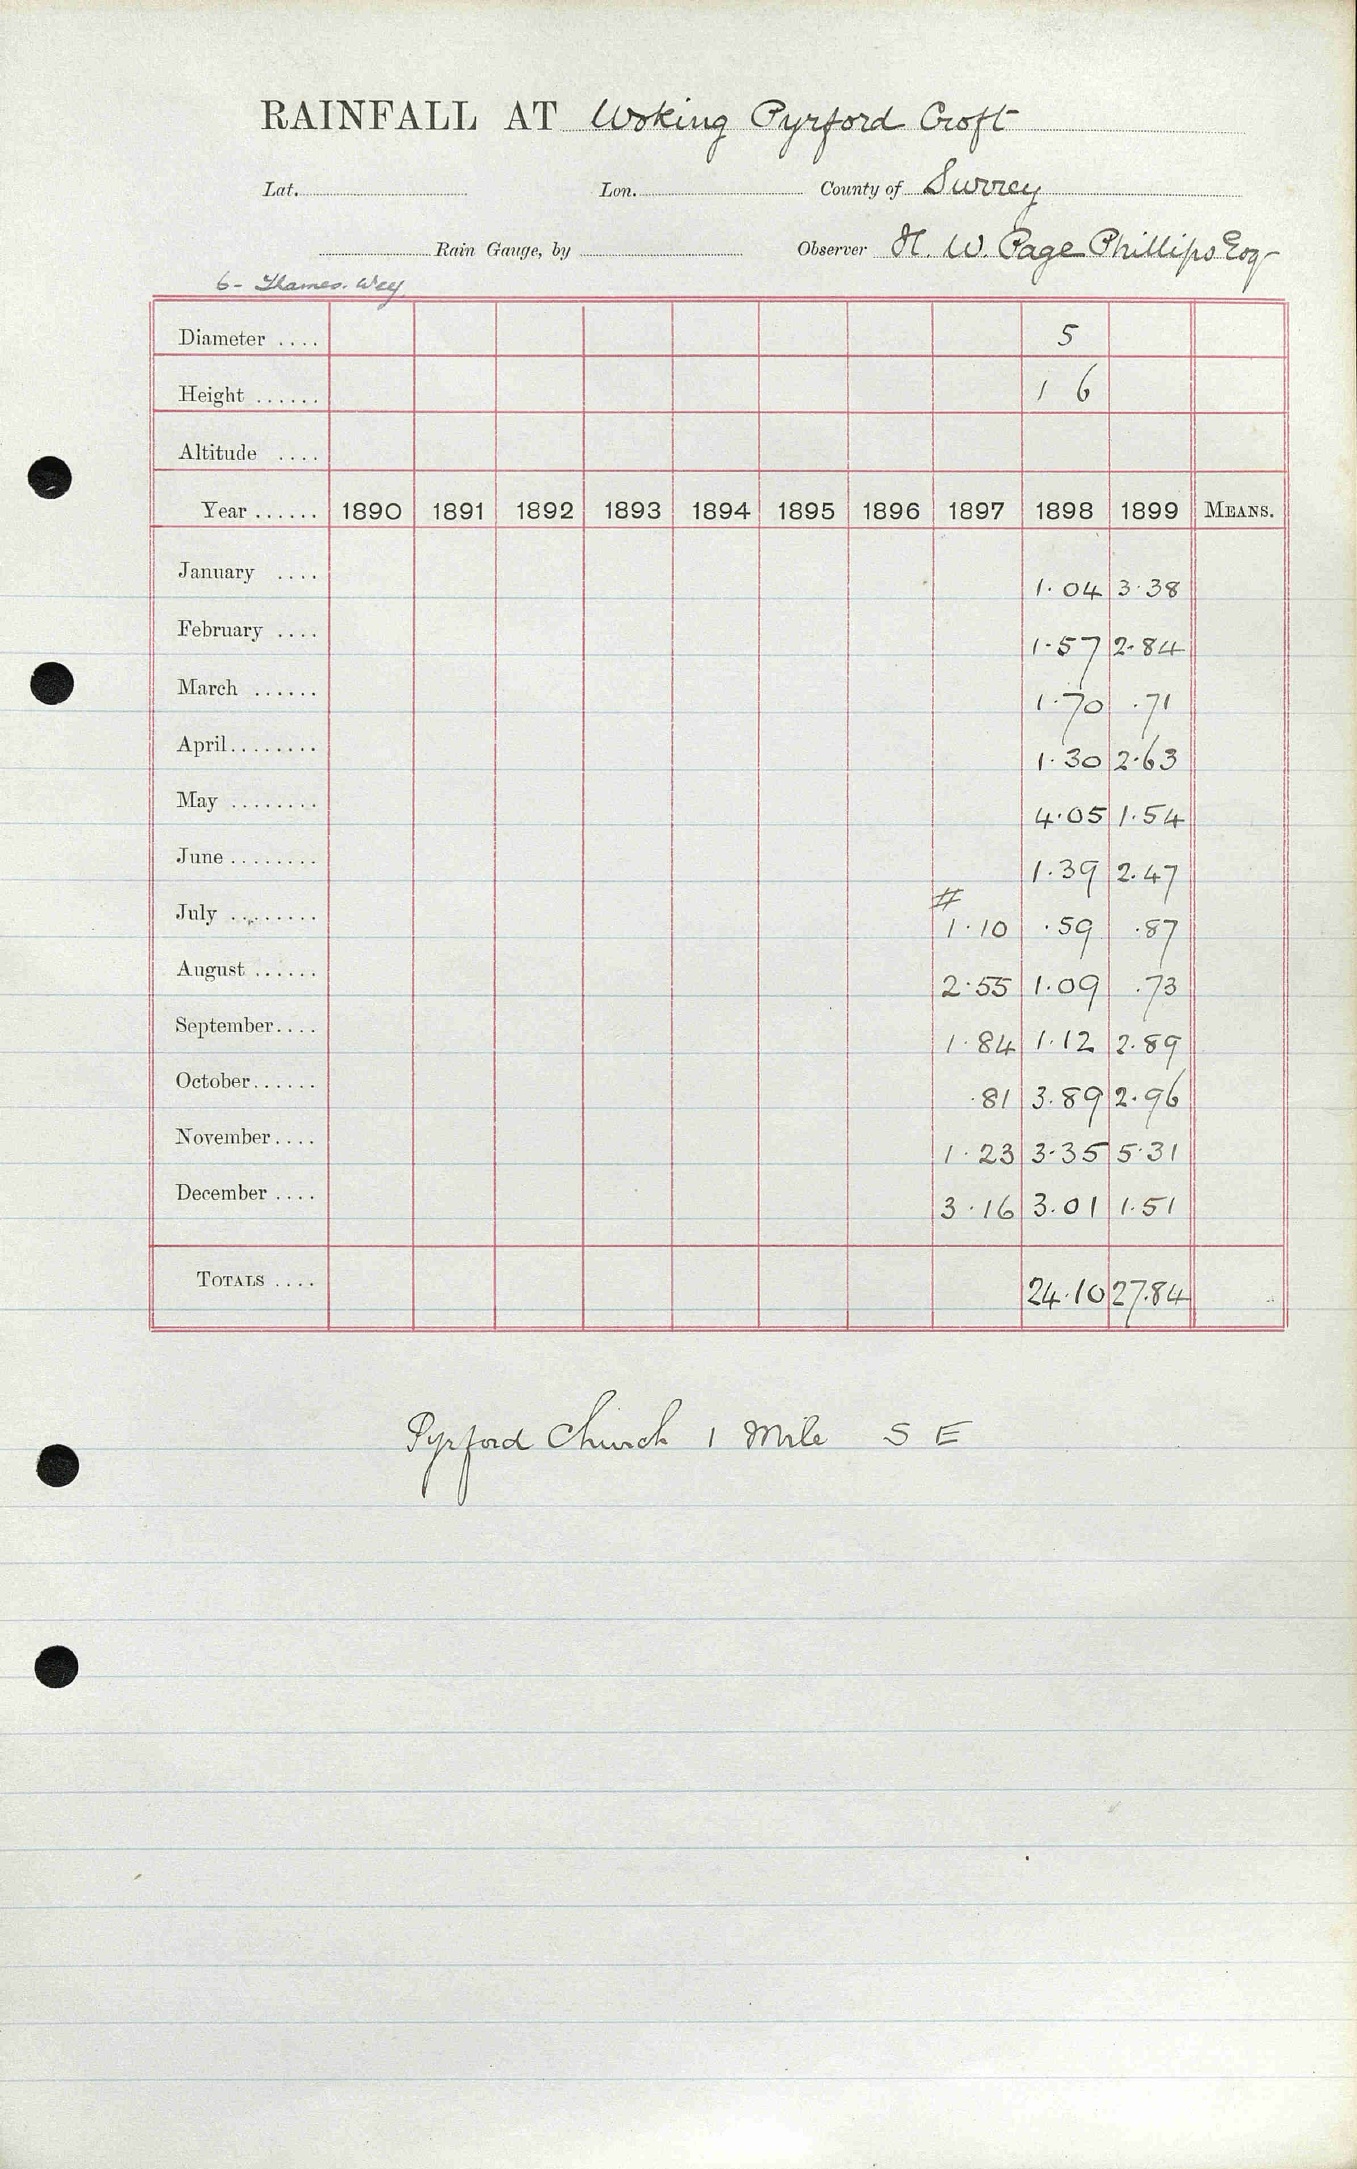 RAINFALL AT Woking Pyrford Croft
Lat. Lon. County of Surrey
Rain Gauge, by Observer H. W. Page Phillips Esq
6 - Thames. Wey
Diameter .... 5
Height ...... 1 6
Altitude ....
Year ...... 1890 1891 1892 1893 1894 1895 1896 1897 1898 1899 MEANS.
January .... 1.04 3.38
February .... 1.57 2.84
March ...... 1.70 .71
April........ 1.30 2.63
May ........ 4.05 1.54
June ........ 1.39 2.47
#
July ........ 1.10 .59 .87
August ...... 2.55 1.09 .73
September.... 1.84 1.12 2.89
October...... .81 3.89 2.96
November.... 1.23 3.35 5.31
December .... 3.16 3.01 1.51
TOTALS .... 24.10 27.84
Pyrford Church 1 Mile S E